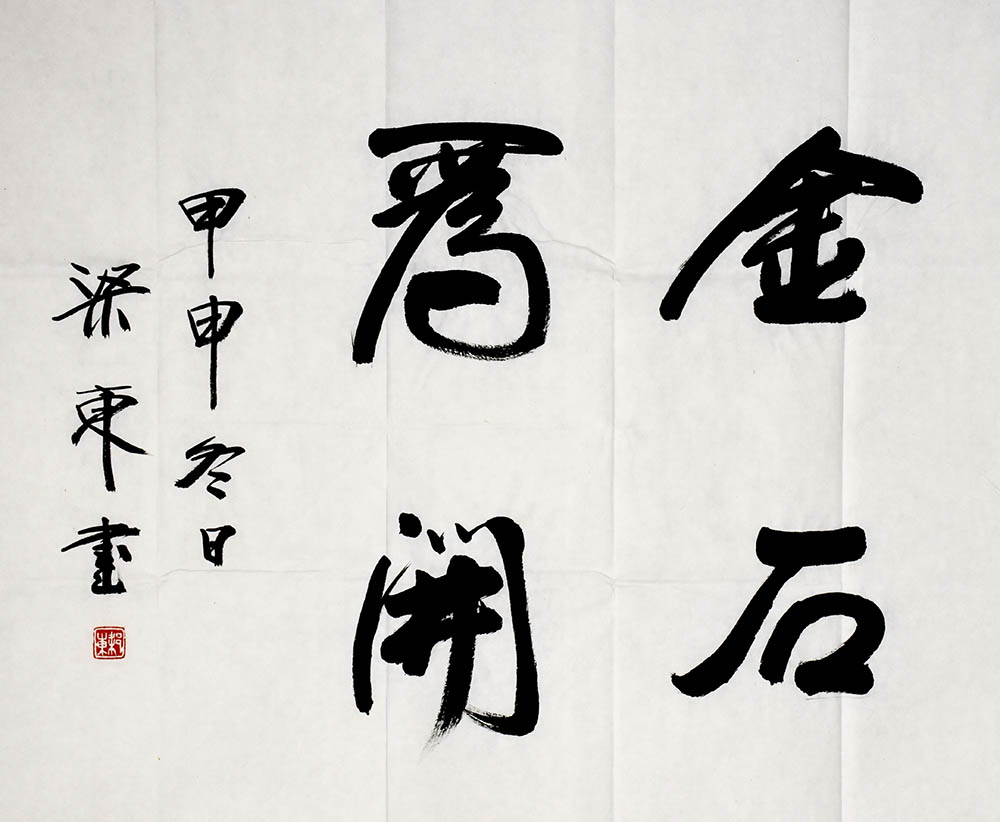 金石
爲開
甲申冬日
梁東書
梁東